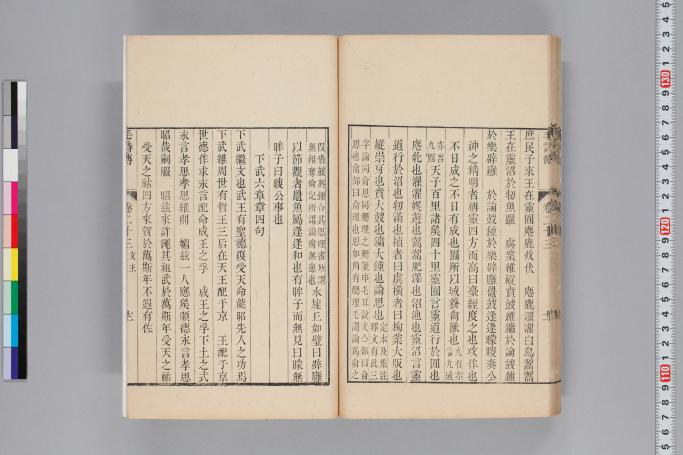 庶民子來王在靈囿麀鹿攸伏　麀鹿濯濯白鳥翯翯
王在靈沼於牣魚躍　虡業維樅賁鼓維鏞於論鼓鍾
於樂辟廱　於論鼓鍾於樂辟廱鼉鼓逢逢矇瞍奏公
神之精明者稱靈四方而高曰臺經度之也攻作也
不日成之不日有成也囿所以域養禽獸也
天子百里諸矦四十里靈囿言靈道行於囿也
麀牝也濯濯娛遊也翯翯肥澤也沼池也靈沼言靈
道行於沼也牣滿也植者曰虡橫者曰栒業大版也
樅崇牙也賁大鼓也鏞大鐘也論思也
水旋丘如璧曰辟廱
以節觀者鼉魚屬逢逢和也有眸子而無見曰矇無
眸子曰瞍公事也
下武六章章四句
下武繼文也武王有聖德復受天命能昭先人之功焉
下武維周世有哲王三后在天王配于京　王配于京
世德作求永言配命成王之孚　成王之孚下土之式
永言孝思孝思維則　媚茲一人應矦順德永言孝思
昭哉嗣服　昭茲來許繩其祖武於萬斯年受天之祜
受天之祜四方來賀於萬斯年不遐有佐
毛詩傳
卷二十三　文王